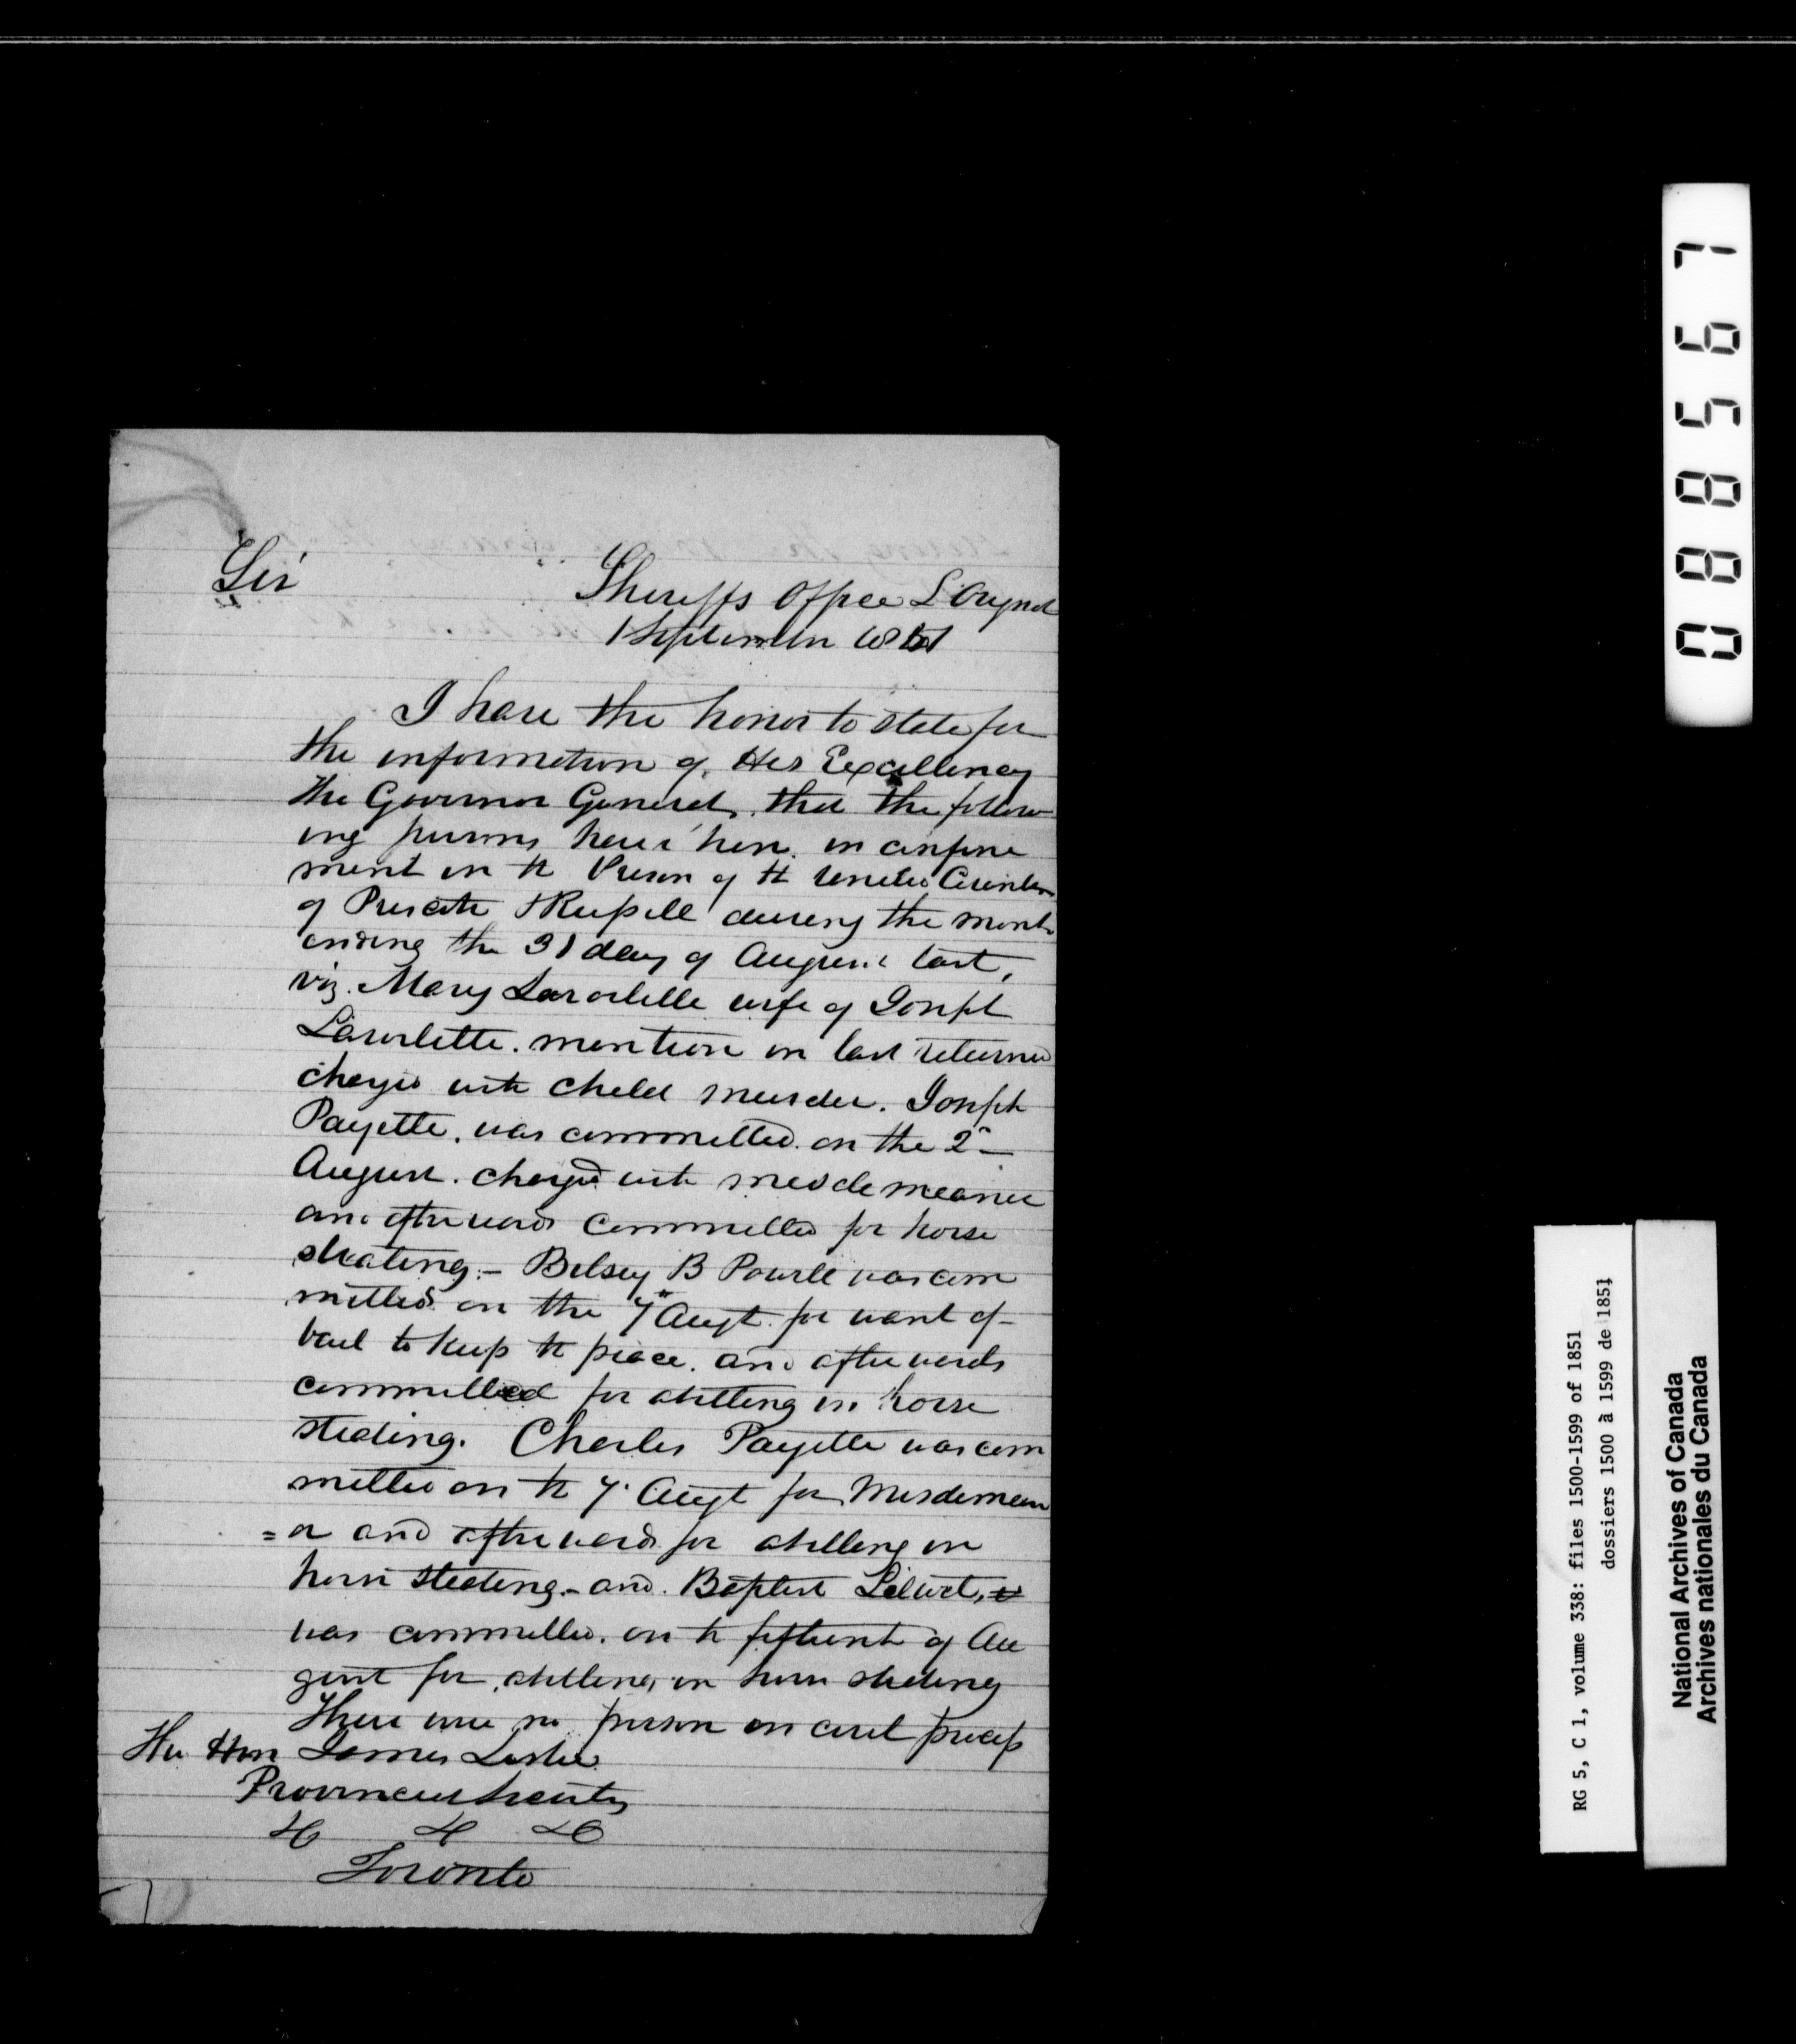 Sir
Sheriffs Office L'Orignal
1 September 1851
I have the honor to state for
the information of His Excellency
the Governor General, that the follow
ing persons have been in confine
ment in the Prison of the United Counties
of Prescott & Russell during the month
ending the 31 day of August last,
viz. Mary Larorlelle wife of Joseph
Larorlette. mention in last returned
charged with child murder. Joseph
Payette, was committed on the 2d
August. charged with misdemeanor
and afterwards committed for horse
stealing:- Betsey B was com
mitted on the 7th Augt. for want of
bail to keep the peace. and afterwards
committed for abetting in horse
stealing. Charles Payette was com
mitted on the 7. Augt for Misdemean
=or and afterwards for abetting in
horse stealing.- and. Baptist
was committed. on the fifteenth of Au
gust for abetting in horse stealing
There were no person on civil process
The Hon James Leslie
Provincial Secretary
&c &c &c
Toronto
088567
RG 5, C 1, volume 338: files 1500-1599 of 1851
dossiers 1500 à 1599 de 1851
National Archives of Canada
Archives nationales du Canada